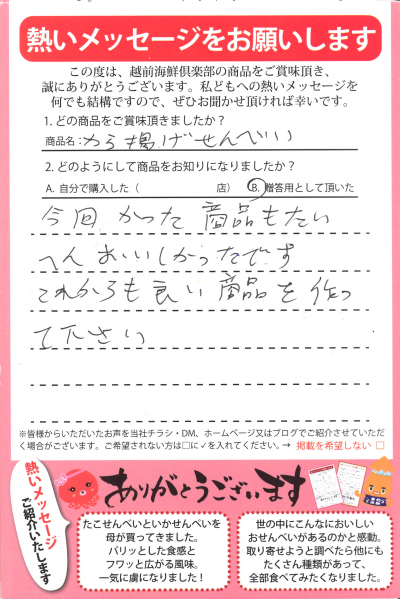 熱いメッセージをお願いします
この度は、越前海鮮倶楽部の商品をご賞味頂き、
誠にありがとうございます。私どもへの熱いメッセージを
何でも結構ですので、ぜひお聞かせ頂ければ幸いです。
1. どの商品をご賞味頂きましたか?
商品名:から揚げせんべい
2. どのようにして商品をお知りになりましたか?
A. 自分で購入した( 店) B. 贈答用として頂いた
今回かった商品もたい
へんおいしかったです
これからも良い商品を作っ
て下さい
※皆様からいただいたお声を当社チラシ・DM、ホームページ又はブログでご紹介させていただ
く場合がございます。ご希望されない方は□に✓を入れてください。→ 掲載を希望しない □
熱いメッセージ
ご紹介いたします
ありがとうございます
たこせんべいといかせんべいを
母が買ってきました。
パリッとした食感と
フワッと広がる風味。
一気に虜になりました!
世の中にこんなにおいしい
おせんべいがあるのかと感動。
取り寄せようと調べたら他にも
たくさん種類があって、
全部食べてみたくなりました。